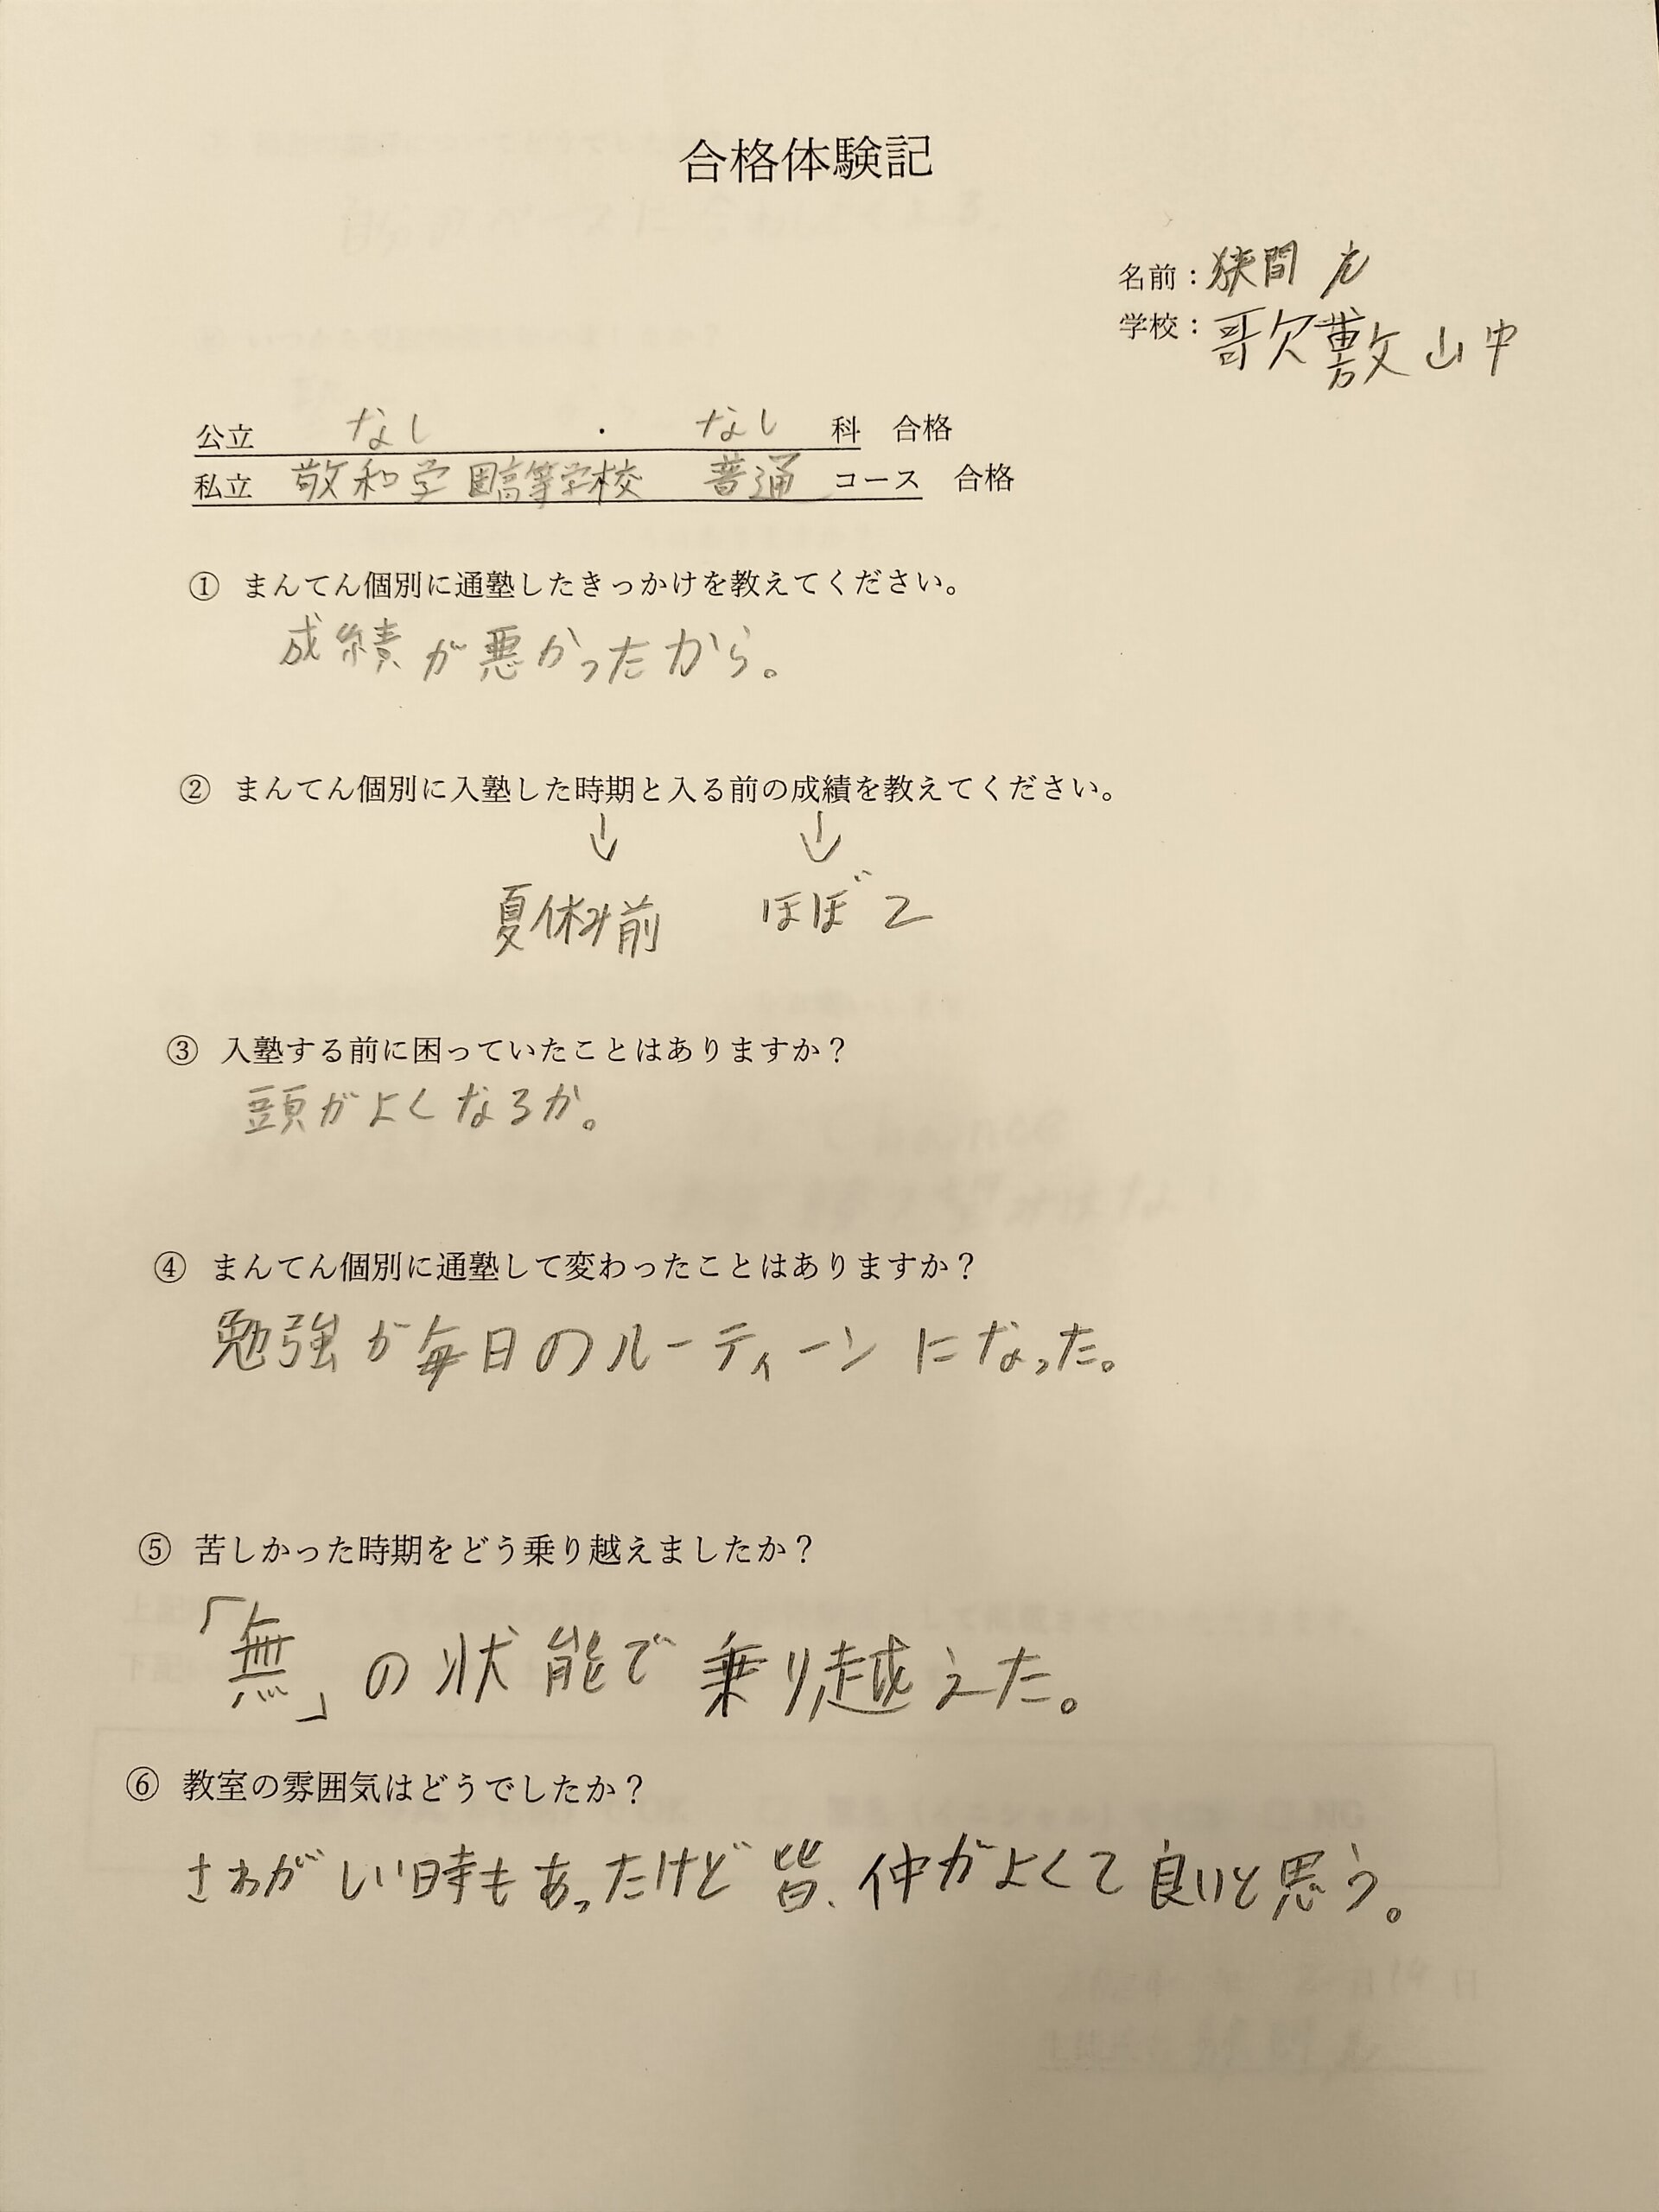 合格体験記
名前：狭間
学校：歌敷山中
公立 なし ・ なし 科 合格
私立 敬和学園高等学校 普通 コース 合格
① まんてん個別に通塾したきっかけを教えてください。
成績が悪かったから。
② まんてん個別に入塾した時期と入る前の成績を教えてください。
↓ ↓
夏休み前 ほぼ2
③ 入塾する前に困っていたことはありますか？
頭がよくなるか。
④ まんてん個別に通塾して変わったことはありますか？
勉強が毎日のルーティーンになった。
⑤ 苦しかった時期をどう乗り越えましたか？
「無」の状能で乗り越えた。
⑥ 教室の雰囲気はどうでしたか？
さわがしい時もあったけど皆、仲がよくて良いと思う。